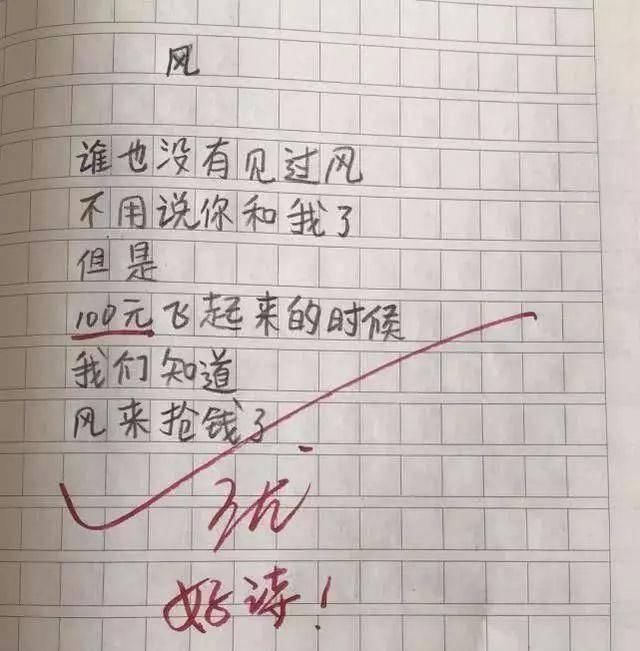 风
谁也没有见过风
不用说你和我了
但是
100元飞起来的时候
我们知道
风来抢钱了
优
好诗！